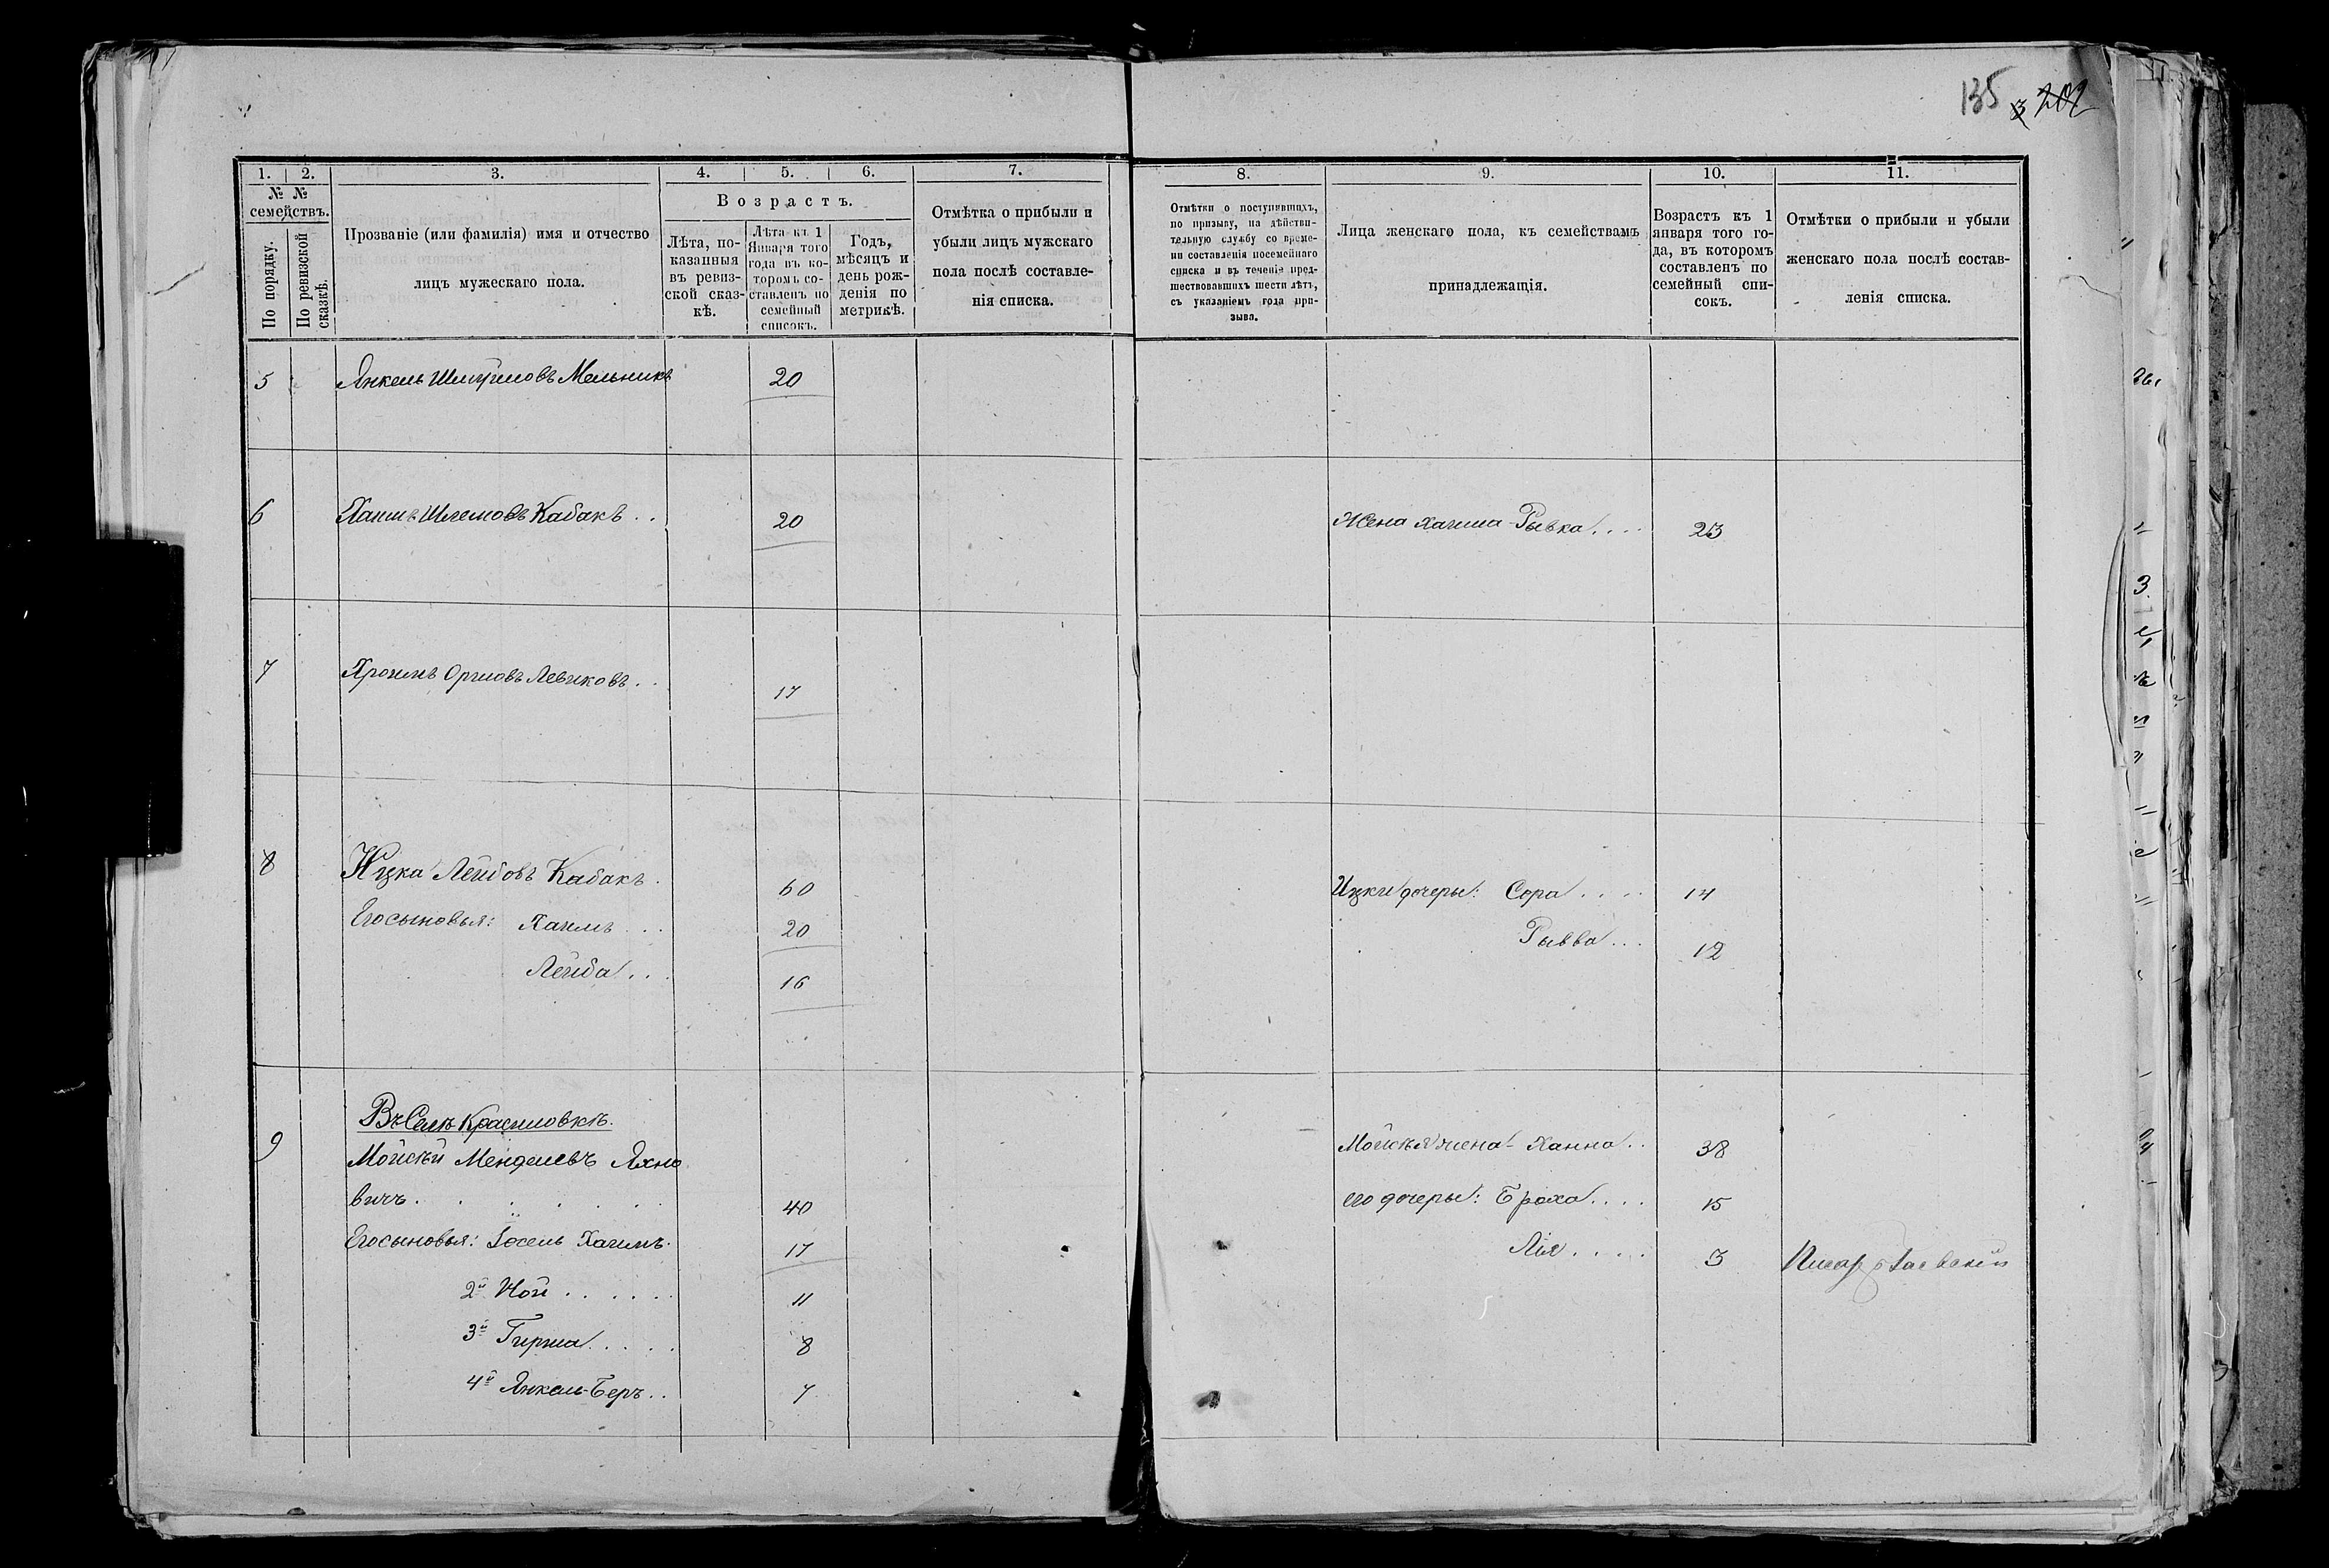 135 3 202
1. 2. 3. 4. 5. 6. 7. 8. 9. 10. 11.
№ № семействъ.
По порядку.
По ревизской сказкѣ.
Прозваніе (или фамилія) имя и отчество
лицъ мужескаго пола.
Возрастъ.
Лѣта, по-
казанныя
въ ревиз-
ской сказ-
кѣ.
Лѣта къ 1
Января того
года въ ко-
торомъ со-
ставленъ по
семейный
списокъ.
Годъ,
мѣсяцъ и
день рож-
денія по
метрикѣ.
Отмѣтка о прибыли и
убыли лицъ мужскаго
пола послѣ составле-
нія списка.
Отмѣтки о поступившихъ,
по призыву, на дѣйстви-
тельную службу со време-
ни составленія посемейнаго
списка и въ теченіе пред-
шествовавшихъ шести лѣтъ,
съ указаніемъ года при-
зыва.
Лица женскаго пола, къ семействамъ
принадлежащія.
Возрастъ къ 1
января того го-
да, въ которомъ
составленъ по
семейный спи-
сокъ.
Отмѣтки о прибыли и убыли
женскаго пола послѣ состав-
ленія списка.
5 Янкель Шмуиловъ Мельникъ 20
6 Хаимъ Шлемовъ Кабакъ . . 20 Жена Хаима - Рывка . . . . 23
7 Хроимъ Оршовъ Левиковъ . . 17
8 Ицка Лейбовъ Кабакъ . 60 Ицки дочеры: Сора . . . . 14
Его сыновья: Хаимъ . . . 20 Рывва . . . 12
Лейба . . . 16
Въ Селѣ Красиловкѣ.
9 Мойсѣй Менделевъ Яхно Мойсѣя жена - Ханна . . 38
вичъ . . . . . . 40 его дочеры: Броха . . . . 15
Его сыновья: Іосель Хаимъ. 17 Лія . . . . 3
2й Ной . . . . . . 11
3й Гирша . . . . . 8
4й Янкель-Беръ . . 7